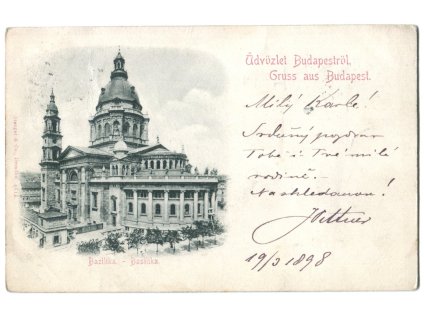 Üdvözlet Budapestről,
Gruss aus Budapest.
Milý Karle!
Srdečný pozdrav
Tobě i Tvé milé
rodině. -
Na shledanou!
19/3 1898
Bazilika. - Basilika.